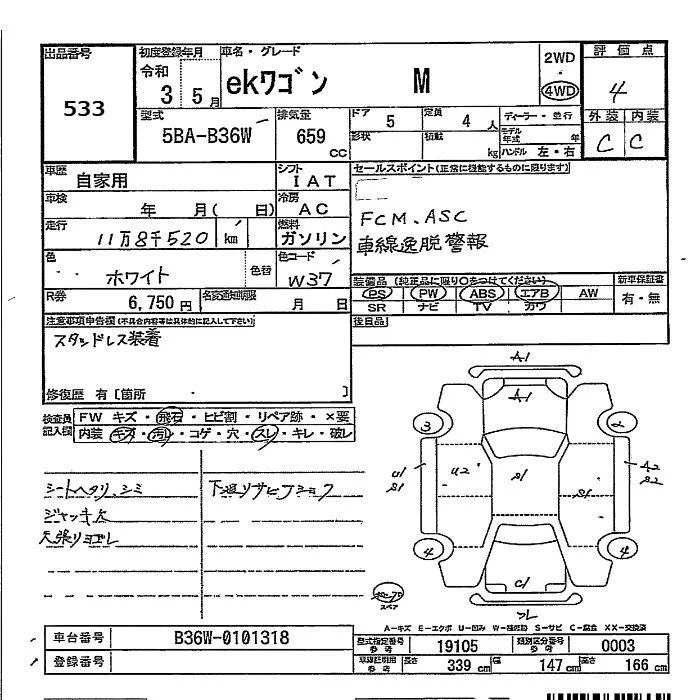 出品番号
533
初度登録年月
令和
3 5月
車名・グレード
ekワゴン M
2WD
4WD
評価点
4
型式
5BA-B36W
排気量
659
cc
ドア
5
定員
4人
形状
積載
kg
ディーラー・並行
モデル年式 年
ハンドル 左・右
外装 内装
C C
車歴
自家用
シフト
IAT
セールスポイント(正常に機能するものに限ります)
車検
年 月( 日)
冷房
AC
FCM.ASC
走行
11万8千520 km
燃料
ガソリン
車線逸脱警報
色
ホワイト
色替
色コード
W37
装備品(純正品に限り○をつけてください)
新車保証書
PS PW ABS エアB AW
有・無
SR ナビ TV カワ
R券
6,750円
名変通知期限
月 日
後日品
注意事項申告欄(不具合内容等は具体的に記入して下さい)
スタッドレス装着
修復歴 有〔箇所 〕
検査員記入欄
FW キズ・飛石・ヒビ割・リペア跡・×要
内装 キズ・汚レ・コゲ・穴・スレ・キレ・破レ
シートヘタリ、シミ
下廻リサビ
ジャッキ欠
天張リヨゴレ
A1
A1
3
2
U1
S1
U2
S1
S1
A2
S2
4
4
C1
スペア
A-キズ E-エクボ U-凹み W-補修跡 S-サビ C-腐食 XX-交換済
車台番号
B36W-0101318
型式指定番号
参考
19105
類別区分番号
参考
0003
登録番号
車検証記載
参考
長さ
339 cm
幅
147 cm
高さ
166 cm